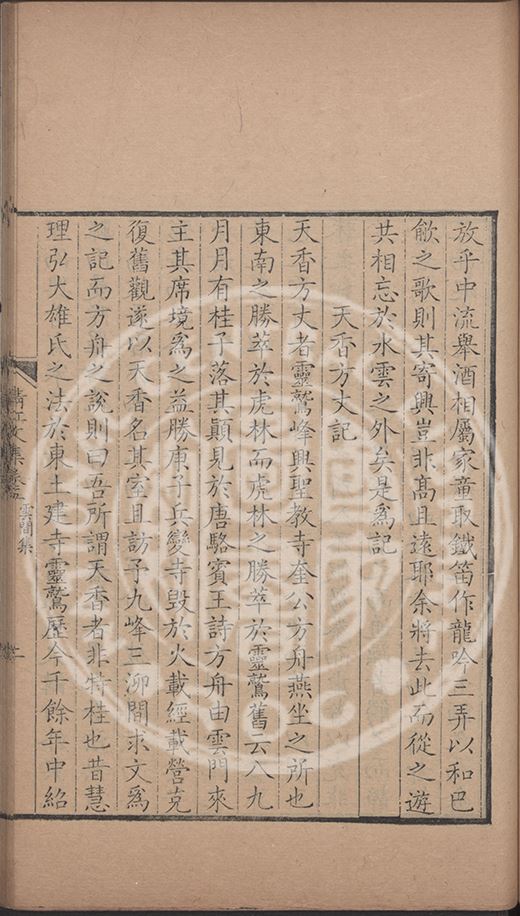 放乎中流舉酒相屬家童取鐵笛作龍吟三弄以和巴
歈之歌則其寄興豈非高且遠耶余將去此而從之遊
共相忘於水雲之外矣是爲記
天香方丈記
天香方丈者靈鷲峰興聖教寺奎公方舟燕坐之所也
東南之勝萃於虎林而虎林之勝萃於靈鷲舊云八九
月月有桂子落其顚見於唐駱賓王詩方舟由雲門來
主其席境爲之益勝庚子兵變寺毀於火載經載營克
復舊觀遂以天香名其室且訪予九峰三泖間求文爲
之記而方舟之說則曰吾所謂天香者非特桂也昔慧
理弘大雄氏之法於東土建寺靈鷲歷今千餘年中紹
清江文集
雲間集